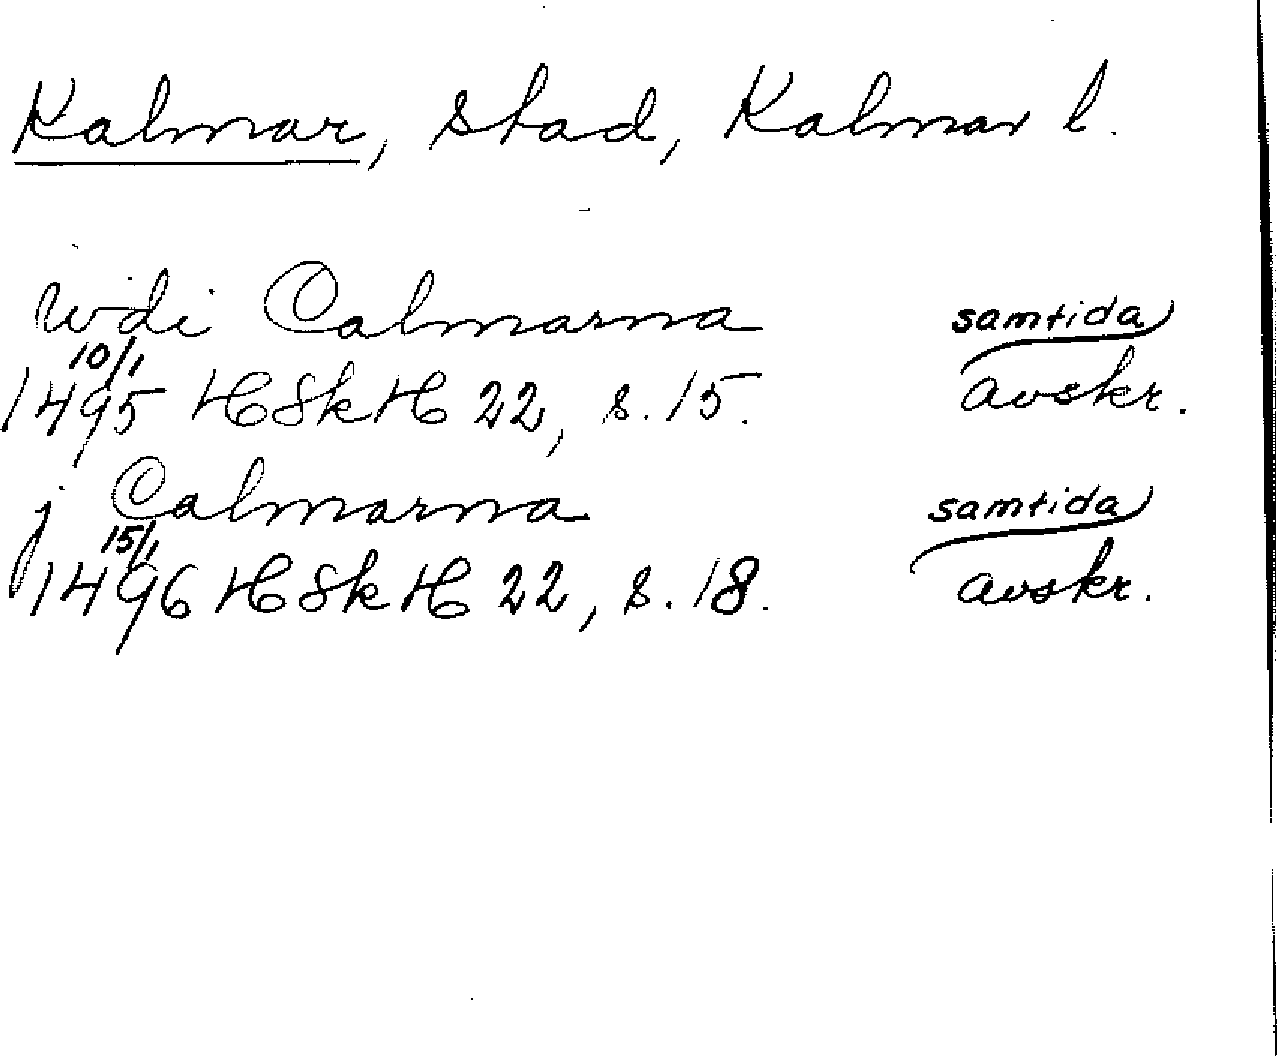 Kalmar, stad, Kalmar l.
wdi Calmarna samtida
10/1
1495 HSkH 22, s. 15. avskr.
j Calmarna samtida
15/1
1496 HSkH 22, s. 18. avskr.